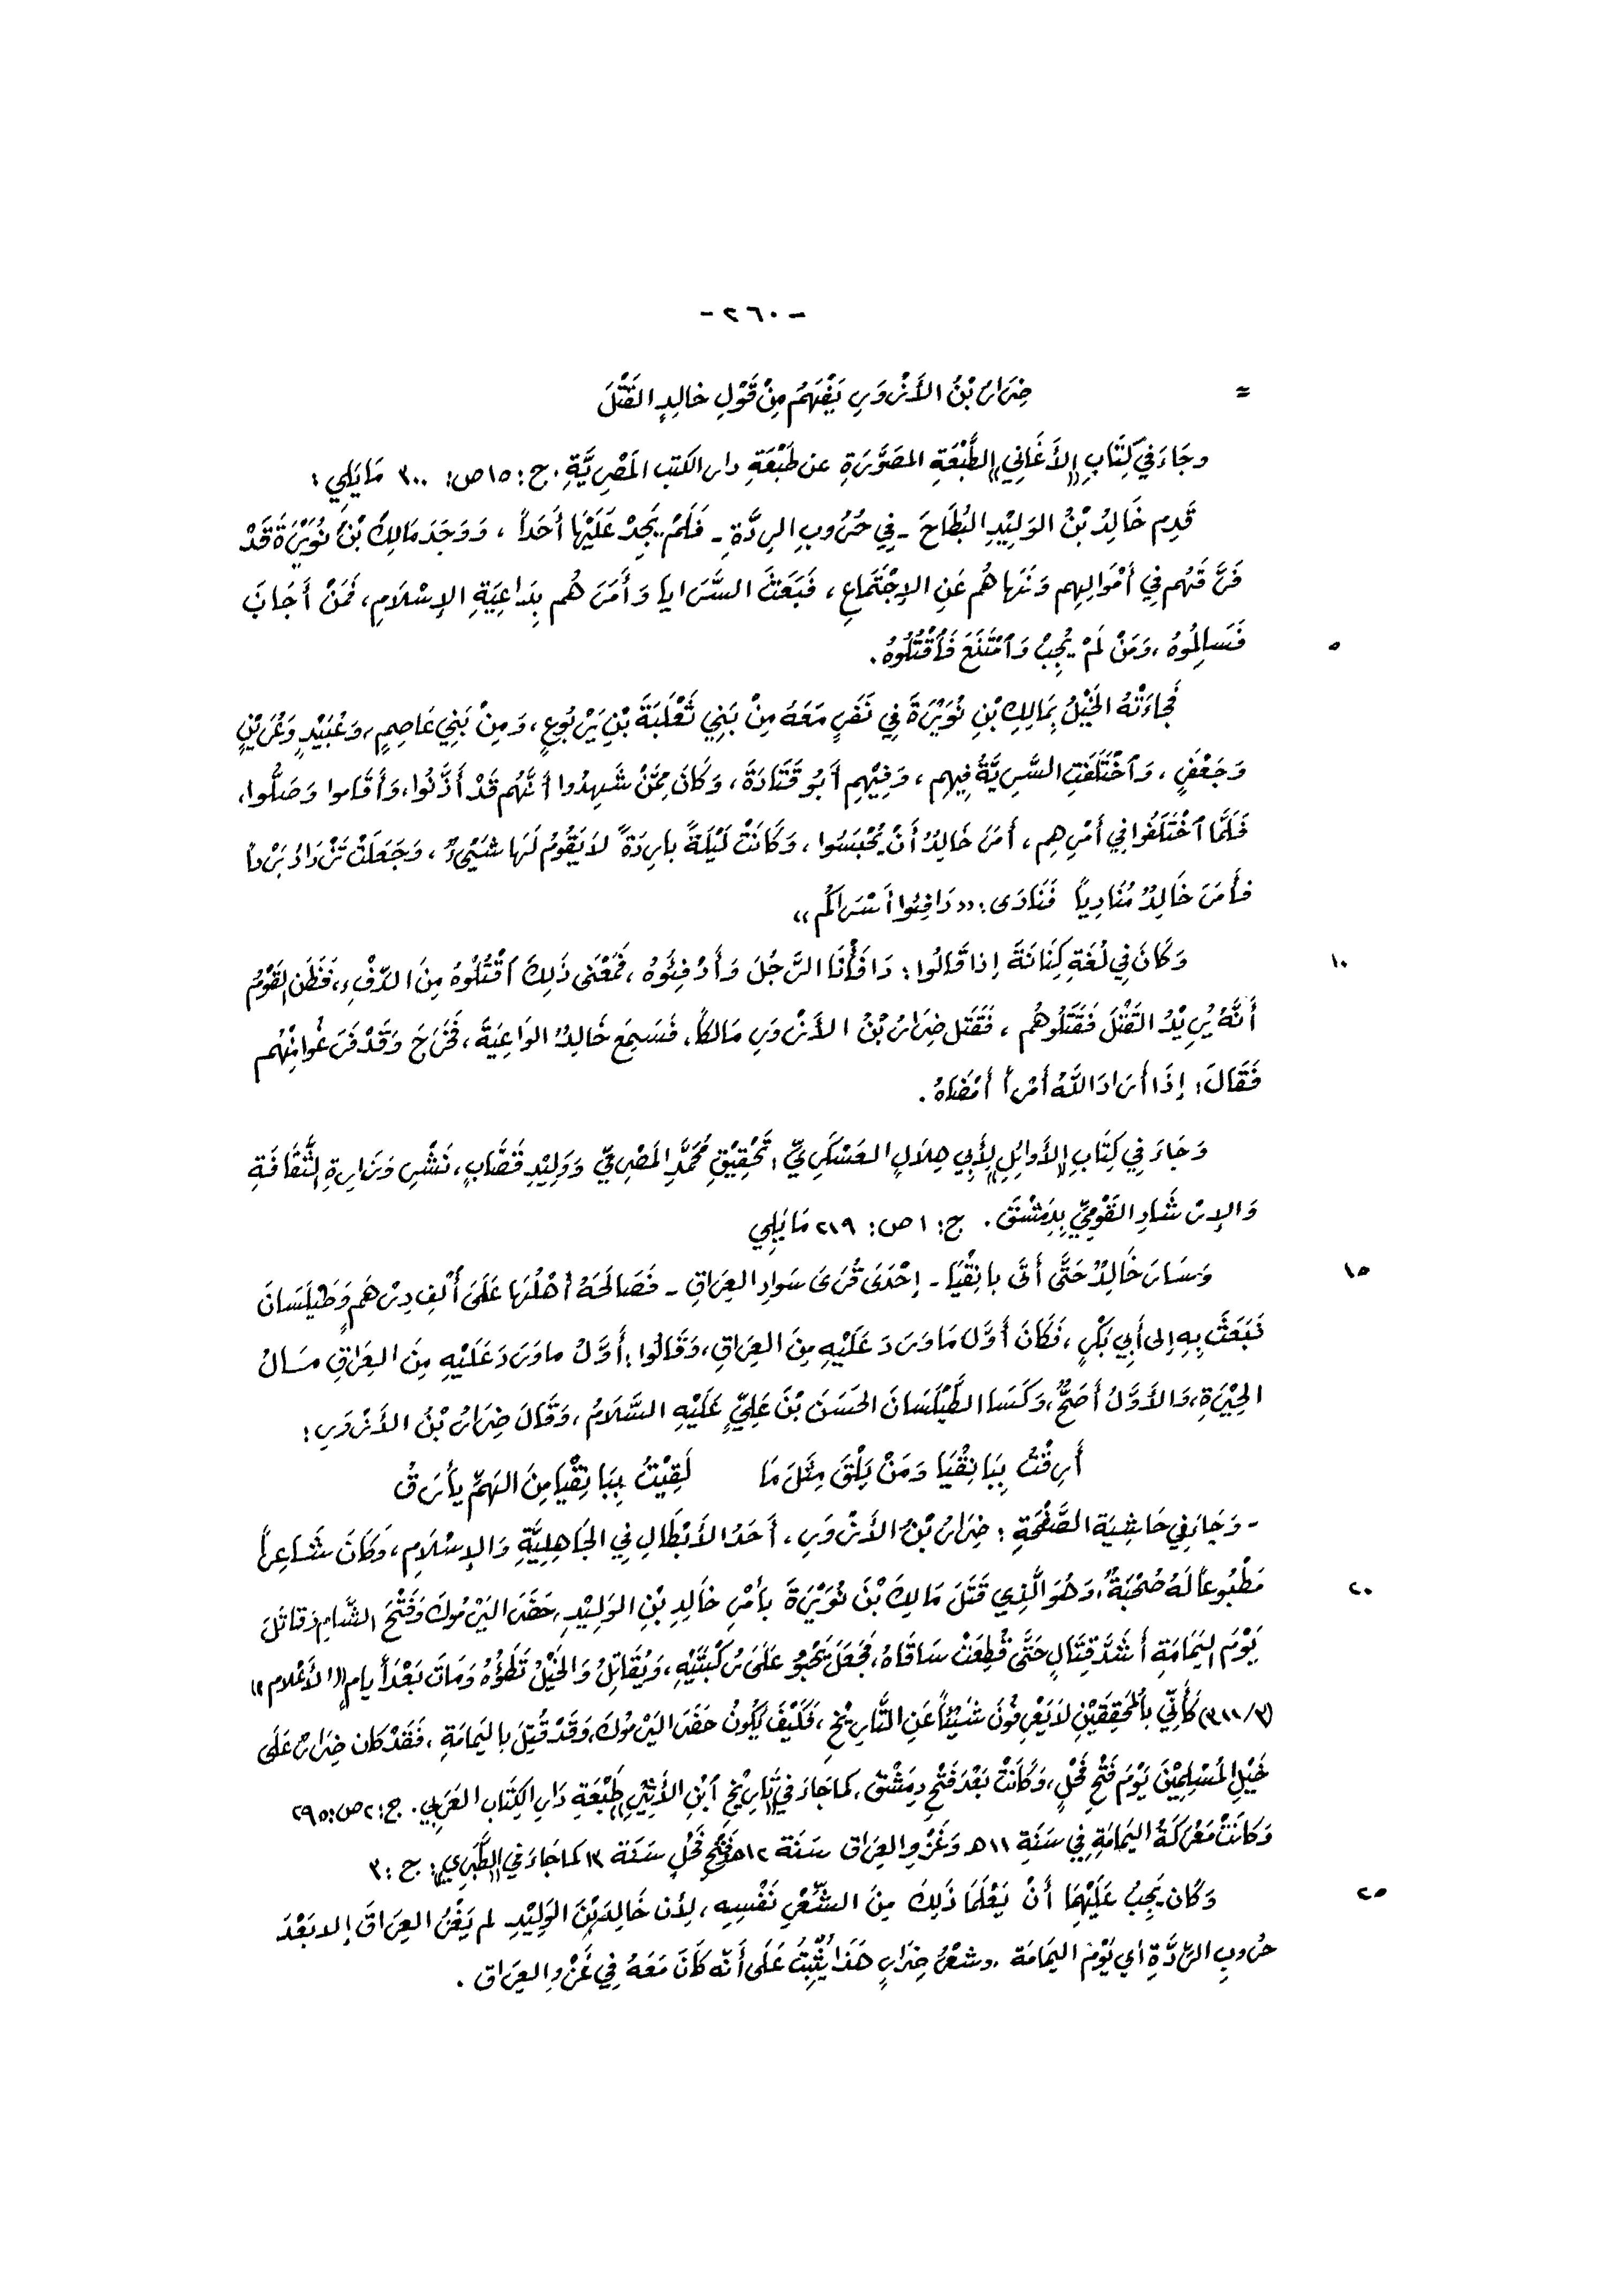 -٢٦٠-
= ضِرَارُ بْنُ الأَزْوَرِ يَفْهَمُ مِنْ قَوْلِ خَالِدٍ القَتْلَ
وجَاءَ فِي كِتَابِ «الأَغَانِي» الطَّبْعَةِ المصَوَّرَةِ عن طَبْعَةِ دار الكتب المَصْرِيَّةِ. ج: ١٥ ص: ٣٠٠ مَا يَلِي :
قَدِم خَالِدُ بْنُ الوَلِيْدِ البُطَاحَ - فِي حُرُوبِ الرِدَّةِ - فَلَمْ يَجِدْ عَلَيْهَا أَحَداً ، وَوَجَدَ مَالِكَ بْنَ نُوَيْرَةَ قَدْ
فَرَّقَهُم فِي أَمْوَالِهِم وَنَهَاهُم عَنِ الإجْتَمَاعِ ، فَبَعَثَ السَّرَايا وَأَمَرَهُم بِدَاعِيَةِ الإسْلَامِ، فَمَنْ أَجَابَ
٥ فَسَالِمُوهُ ، وَمَنْ لَمْ يُجِبْ وَٱمْتَنَعَ فَٱقْتُلُوهُ.
فَجاءَتْهُ الخَيْلُ بِمَالِكِ بْنِ نُوَيْرَةَ فِي نَفَرٍ مَعَهُ مِنْ بَنِي ثَعْلَبَةَ بْنِ يَرْبُوعٍ ، وَمِنْ بَنِي عَاصِمٍ، وَعُبَيْدٍ وَعُرَيْنٍ
وَجَعْفَرٍ ، وَٱخْتَلَفَتِ السَّرِيَّةُ فِيهِم ، وَفِيْهِم أَبُو قَتَادَةَ ، وَكَانَ مِمَّنْ شَهِدُوا أَنَّهُم قَدْ أَذَّنُوا، وَأَقَاموا وَصَلُّوا،
فَلَمَّا ٱخْتَلَفُوا فِي أَمْرِهِم ، أَمَرَ خَالِدٌ أَنْ يُحْبَسُوا ، وَكَانَتْ لَيْلَةً بارِدَةً لَا يَقُومُ لَهَا شَيْءٌ ، وَجَعَلَتْ تَزْدَادُ بَرْداً
فأَمَرَ خَالِدٌ مُنَادِياً فَنَادَى : «دَافِئُوا أَسْرَاكُم»
١٠ وَكَانَ فِي لُغَةِ كِنَانَةَ إذا قَالُوا : دَافَأْنَا الرَّجُلَ وَأَدْفِئُوهُ ، فَمَعْنَى ذَلِكَ ٱقْتُلُوهُ مِنَ الدِّفْءِ ، فَظَن القَوْمُ
أَنَّهُ يُرِيْدُ القَتْلَ فَقَتَلُوهُم ، فَقَتَل ضِرَارُ بْنُ الأَزْوَرِ مَالكاً ، فَسَمِعَ خَالِدٌ الوَاعِيَةَ ، فَخَرَجَ وَقَدْ فَرَغُوا مِنْهُم
فَقَالَ : إذَا أَرَادَ اللَّهُ أَمْراً أَمْضَاهُ .
وَجَاءَ فِي كِتَابِ «الأَوَائِلِ» لِأَبِي هِلَالٍ العَسْكَرِيِّ ، تَحْقِيْقِ مُحَمَّدِ المَصْرِيِّ وَوَلِيْدِ قَصَّابٍ ، نَشْرِ وَزَارِةِ الثَّقَافَةِ
وَالإرْشَادِ القَوْمِيِّ بِدِمَشْقَ . ج: ١ ص: ٢١٩ مَا يَلِي
١٥ وَسَارَ خَالِدٌ حَتَّى أَتَى بانِقْيَا - إحْدَى قُرَى سَوادِ العِرَاقِ - فَصَالَحَهُ أَهْلُهَا عَلَى أَلْفِ دِرْهَمٍ وَطَيْلَسَانَ
فَبَعَثَ بِهِ إلى أَبِي بَكْرٍ ، فَكَانَ أَوَّلَ مَا وَرَدَ عَلَيْهِ مِنَ العِرَاقِ ، وَقَالُوا : أَوَّلُ ما وَرَدَ عَلَيْهِ مِنَ العِرَاقِ مَالُ
الحِيْرَةِ ، وَالأَوَّلُ أَصَحُّ ، وَكَسَا الطَّيْلَسَانَ الحَسَنَ بْنَ عَلِيٍّ عَلَيْهِ السَّلَامُ ، وَقَالَ ضِرَارُ بْنُ الأَزْوَرِ :
أَرِقْتُ بِبَانِقْيَا وَمَنْ يَلْقَ مِثْلَ مَا لَقِيْتُ بِبَانِقْيا مِنَ الهَمِّ يأَرَقُ
- وَجَاءَ فِي حَاشِيَة الصَّفْحَةِ : ضِرَارُ بْنُ الأَزْوَرِ ، أَحَدُ الأَبْطَالِ فِي الجَاهِلِيَّةِ وَالإسْلَامِ ، وَكَانَ شَاعِراً
٢٠ مَطْبُوعاً لَهُ صُحْبَةٌ ، وَهُوَ الَّذِي قَتَلَ مَالِكَ بْنَ نُوَيْرَةَ بأَمْرِ خَالِدِ بْنِ الوَلِيْدِ ، حَضَرَ اليَرْمُوكَ وَفَتْحَ الشَّامِ وَقَاتَلَ
يَوْمَ اليَمَامَةِ أَشَدَّ قِتَالٍ حَتَّى قُطِعَتْ سَاقَاهُ ، فَجَعَلَ يَحْبُو عَلَى رُكْبَتَيْهِ ، وَيُقَاتِلُ وَالخَيْلُ تَطَؤُهُ وَمَاتَ بَعْدَ أَيام «الأَعْلام»
(٣١١/٣) كَأَنِّي بالمُحَقِقَيْنِ لَا يَعْرِفُونَ شَيْئاً عَنِ التَّارِيْخِ ، فَكَيْفَ يَكُونُ حَضَرَ اليَرْمُوكَ ، وَقَدْ قُتِلَ باليَمَامَةِ ، فَقَدْ كان ضِرَارُ عَلَى
خَيْلِ المُسْلِمِيْنَ يَوْمَ فَتْحِ فَحْلٍ ، وَكَانَتْ بَعْدَ فَتْحِ دِمَشْقَ ، كما جَاءَ فِي «تَارِيْخِ ٱبْنِ الأَثِيْرِ» طَبْعَةِ دَارِ الكِتَابِ العَرَبِي . ج: ٢ ص: ٢٩٥
وَكَانَتْ مَعْرَكَةُ اليَمَامَةِ فِي سَنَةِ ١١هـ وَغَزْو العِرَاق سَنَة ١٢هـ وَفَتْحُ فَحْلٍ سَنَة ١٣ كما جَاءَ فِي «الطَّبَرِي» ج : ٣
٢٥ وَكَان يَجِبُ عَلَيْهِمَا أَنْ يَعْلَمَا ذَلِكَ مِنَ الشِّعْرِ نَفْسِهِ ، لِأَن خَالِدَ بْنَ الوَلِيْدِ لم يَغْزُ العِرَاقَ إلا بَعْدَ
حُرُوبِ الرِّدَّةِ أي يَوْمَ اليمَامَة ، وشعْرُ ضِرَارٍ هَذَا يُثْبِتُ عَلَى أَنّه كَانَ مَعَهُ فِي غَزْوِ العِرَاق .